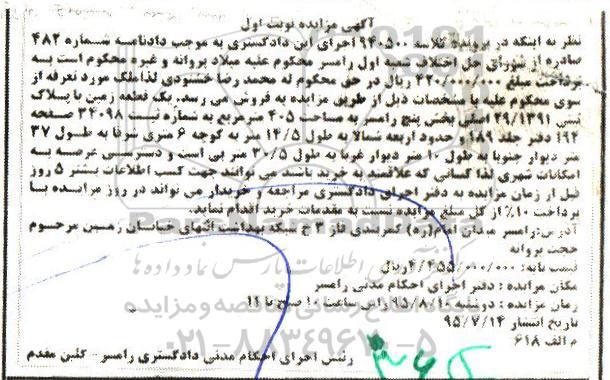 آگهی مزایده نوبت اول
نظر به اینکه در پرونده کلاسه ۹۴۰۵۰۰ اجرای این دادگستری به موجب دادنامه شماره ۴۸۲
صادره از شورای حل اختلاف شعبه اول رامسر محکوم علیه میلاد پروانه و غیره محکوم است به
پرداخت مبلغ ۲۲۰/۰۰۰/۰۰۰ ریال در حق محکوم له محمد رضا خشنودی لذا ملک مورد تعرفه از
سوی محکوم علیه با مشخصات ذیل از طریق مزایده به فروش می رسد. یک قطعه زمین با پلاک
ثبتی ۲۹/۱۳۹۱ اصلی بخش پنج رامسر به مساحت ۴۰۵ مترمربع به شماره ثبت ۳۴۰۹۸ صفحه
۱۹۲ دفتر جلد ۱۸۹ حدود اربعه شمالا به طول ۱۴/۵ متر به کوچه ۶ متری شرقا به طول ۳۷
متر دیوار جنوبا به طول ۱۰ متر دیوار غربا به طول ۳۰/۵ متر پی است و دسترسی عرصه به
امکانات شهری لذا کسانی که علاقمند به خرید باشند می توانند جهت کسب اطلاعات بیشتر ۵ روز
قبل از زمان مزایده به دفتر اجرای دادگستری مراجعه و خریدار می تواند در روز مزایده با
پرداخت ۱۰٪ از کل مبلغ مزایده نسبت به مقدمات خرید اقدام نماید.
آدرس: رامسر میدان امام(ره) کمربندی فاز ۳ ج شبکه بهداشت انتهای خیابان زمین مرحوم
حجت پروانه
قیمت پایه: ۴/۴۵۵/۰۰۰/۰۰۰ ریال
مکان مزایده: دفتر اجرای احکام مدنی رامسر
زمان مزایده: دوشنبه ۹۵/۸/۱۰ راس ساعت ۱۰ صبح تا ۱۱
تاریخ انتشار ۹۵/۷/۱۴
م الف ۶۱۸
رئیس اجرای احکام مدنی دادگستری رامسر - گلین مقدم
پایگاه اطلاع رسانی مناقصه و مزایده
۰۲۱-۸۸۳۴۹۶۷۰-۵